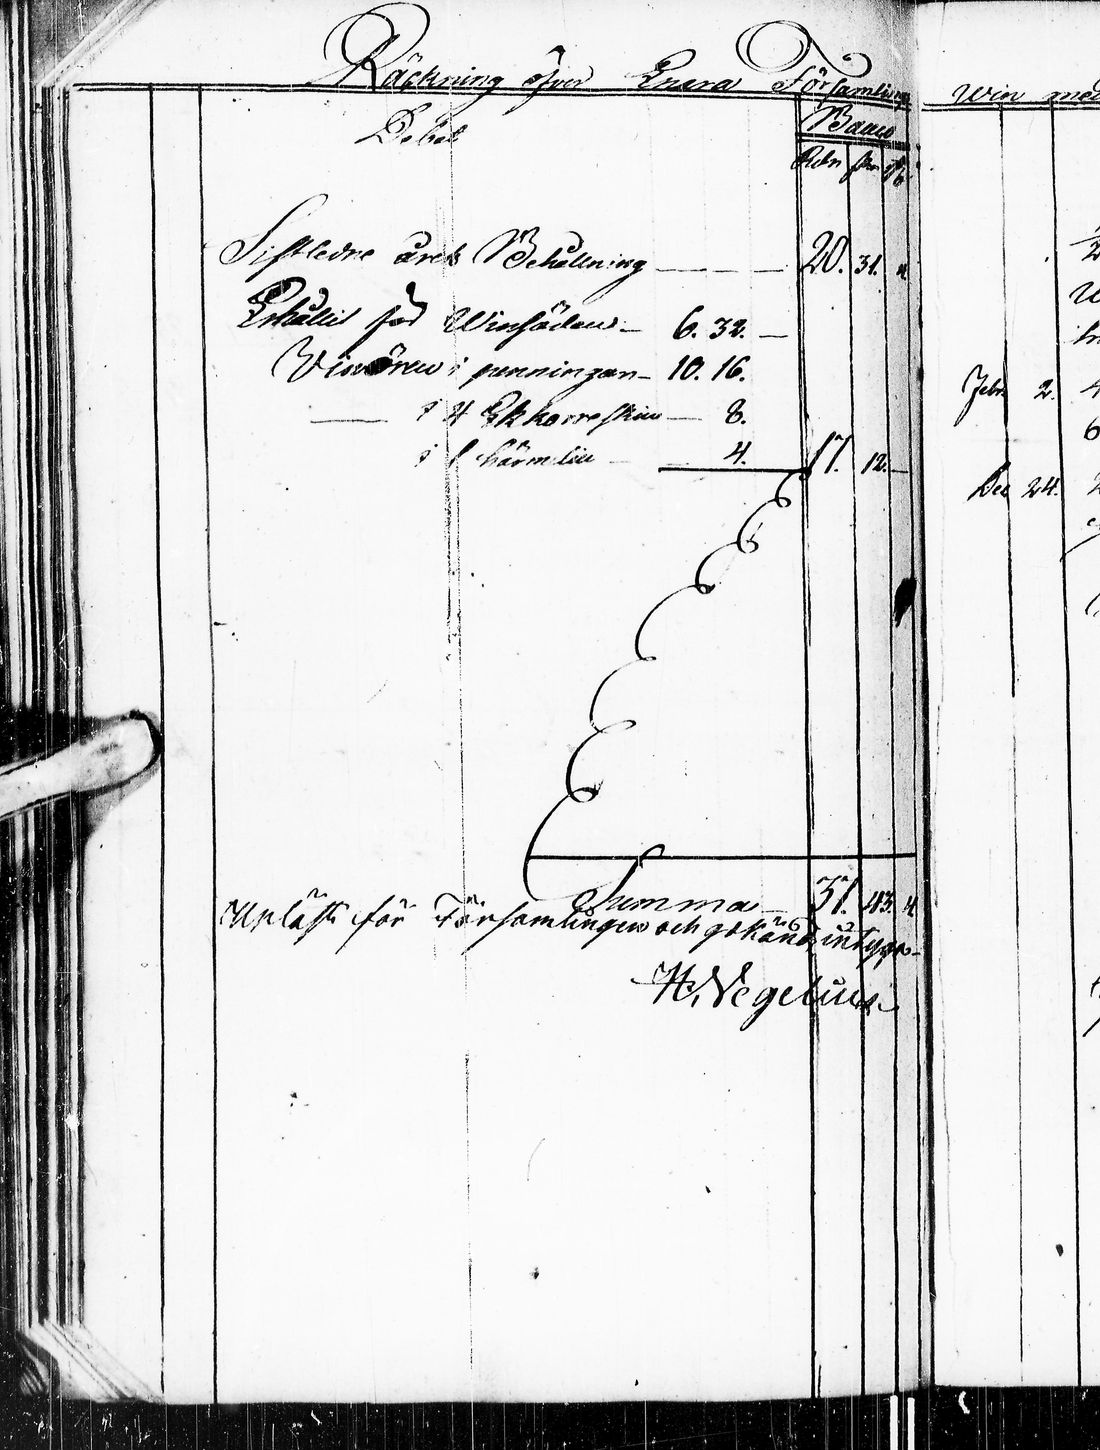 Räckning öfver Enara Församlings
Debet
Banco
Rdr sk rs
Sistledne årets Behållning 20. 31. 4
Erhållit för Winsäden 6. 32.
Vinören i penningar 10. 16.
i 4 Ekkorreskin 8.
i 1 härmelin 4. 17. 12.
Summa 37. 43. 4
Upläst för Församlingen och godkänd, intygar
H. Wegelius
Win med
Febr 2.
Dec 24.